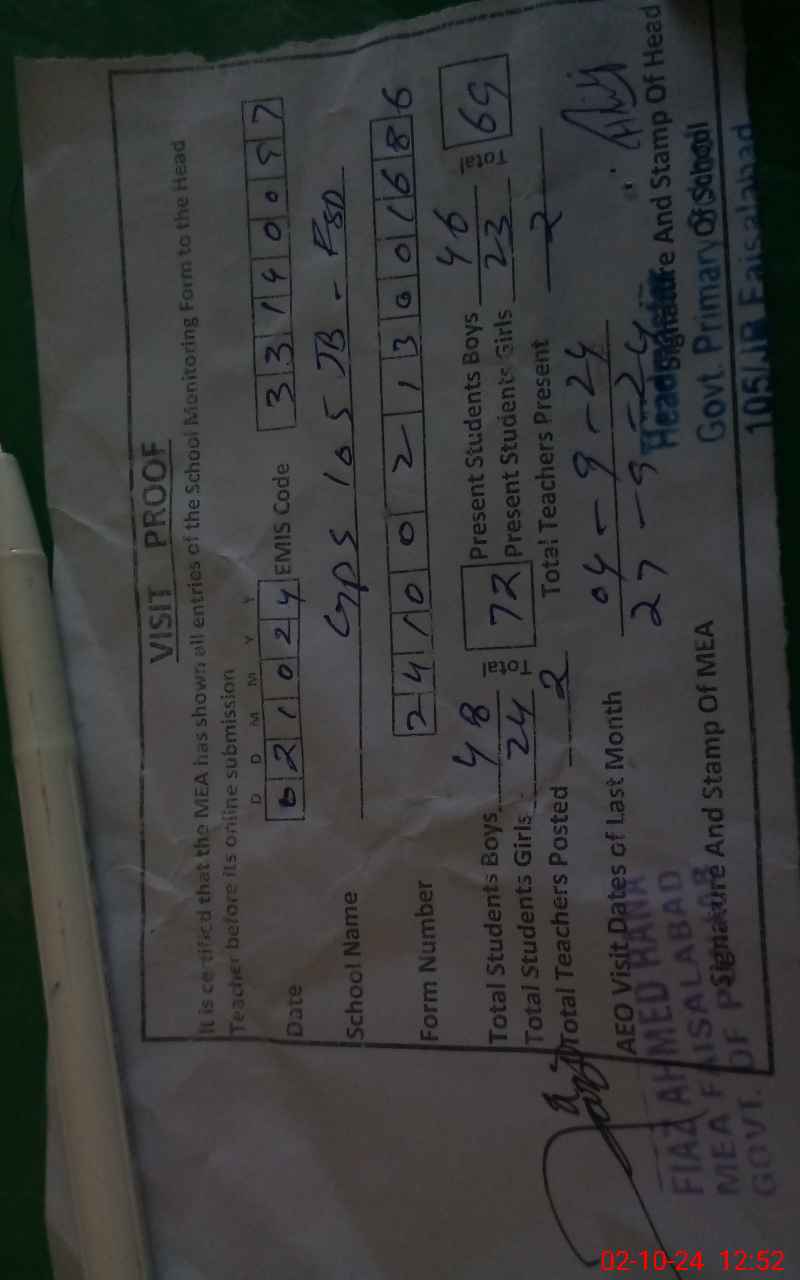 VISIT PROOF
It is certified that the MEA has shown all entries of the School Monitoring Form to the Head
Teacher before its online submission
D D M M Y Y
Date 021024 EMIS Code 33140097
School Name GPS 105 JB - FSD
Form Number 24100213001686
Total Students Boys 48 Total 72 Present Students Boys 46 Total 69
Total Students Girls 24 Present Students Girls 23
Total Teachers Posted 2 Total Teachers Present 2
AEO Visit Dates of Last Month 04-9-24
27-9-24
Signature And Stamp Of MEA
Signature And Stamp Of Head
Of School
FIAZ AHMED RANA
MEA FAISALABAD
GOVT. OF
Govt. Primary School
105/JB Faisalabad
02-10-24 12:52